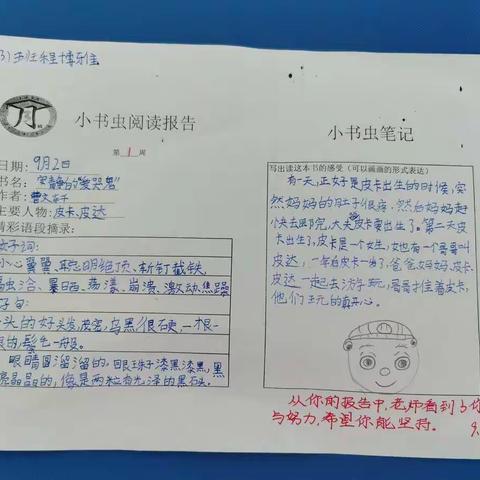 小书虫阅读报告
第1周
日期：9月2日
书名：
作者：曹文轩
主要人物：皮卡、皮达
精彩语段摘录：
好词：
小心翼翼、聪明绝顶、斩钉截铁、
崩溃、激动、焦躁
好句：
一头的好头发，茂密，乌黑，很硬，一根一
根的，鬃毛一般。
眼睛圆溜溜的，眼珠子漆黑漆黑，黑
亮晶晶的，像是两粒有光泽的黑石头。
小书虫笔记
写出读这本书的感受（可以画画的形式表达）
有一天，正好是皮卡出生的时候，突
然妈妈的肚子很疼，然后妈妈赶
快去医院，皮卡要出生了。第二天皮
卡出生了，皮卡是一个女生，她也有一个哥哥叫
皮达，一年后皮卡一岁了，爸爸、妈妈、皮卡、
皮达一起去游玩，哥哥拉着皮卡，
他们玩的真开心。
从你的报告中，老师看到了你
与努力，希望你能坚持。